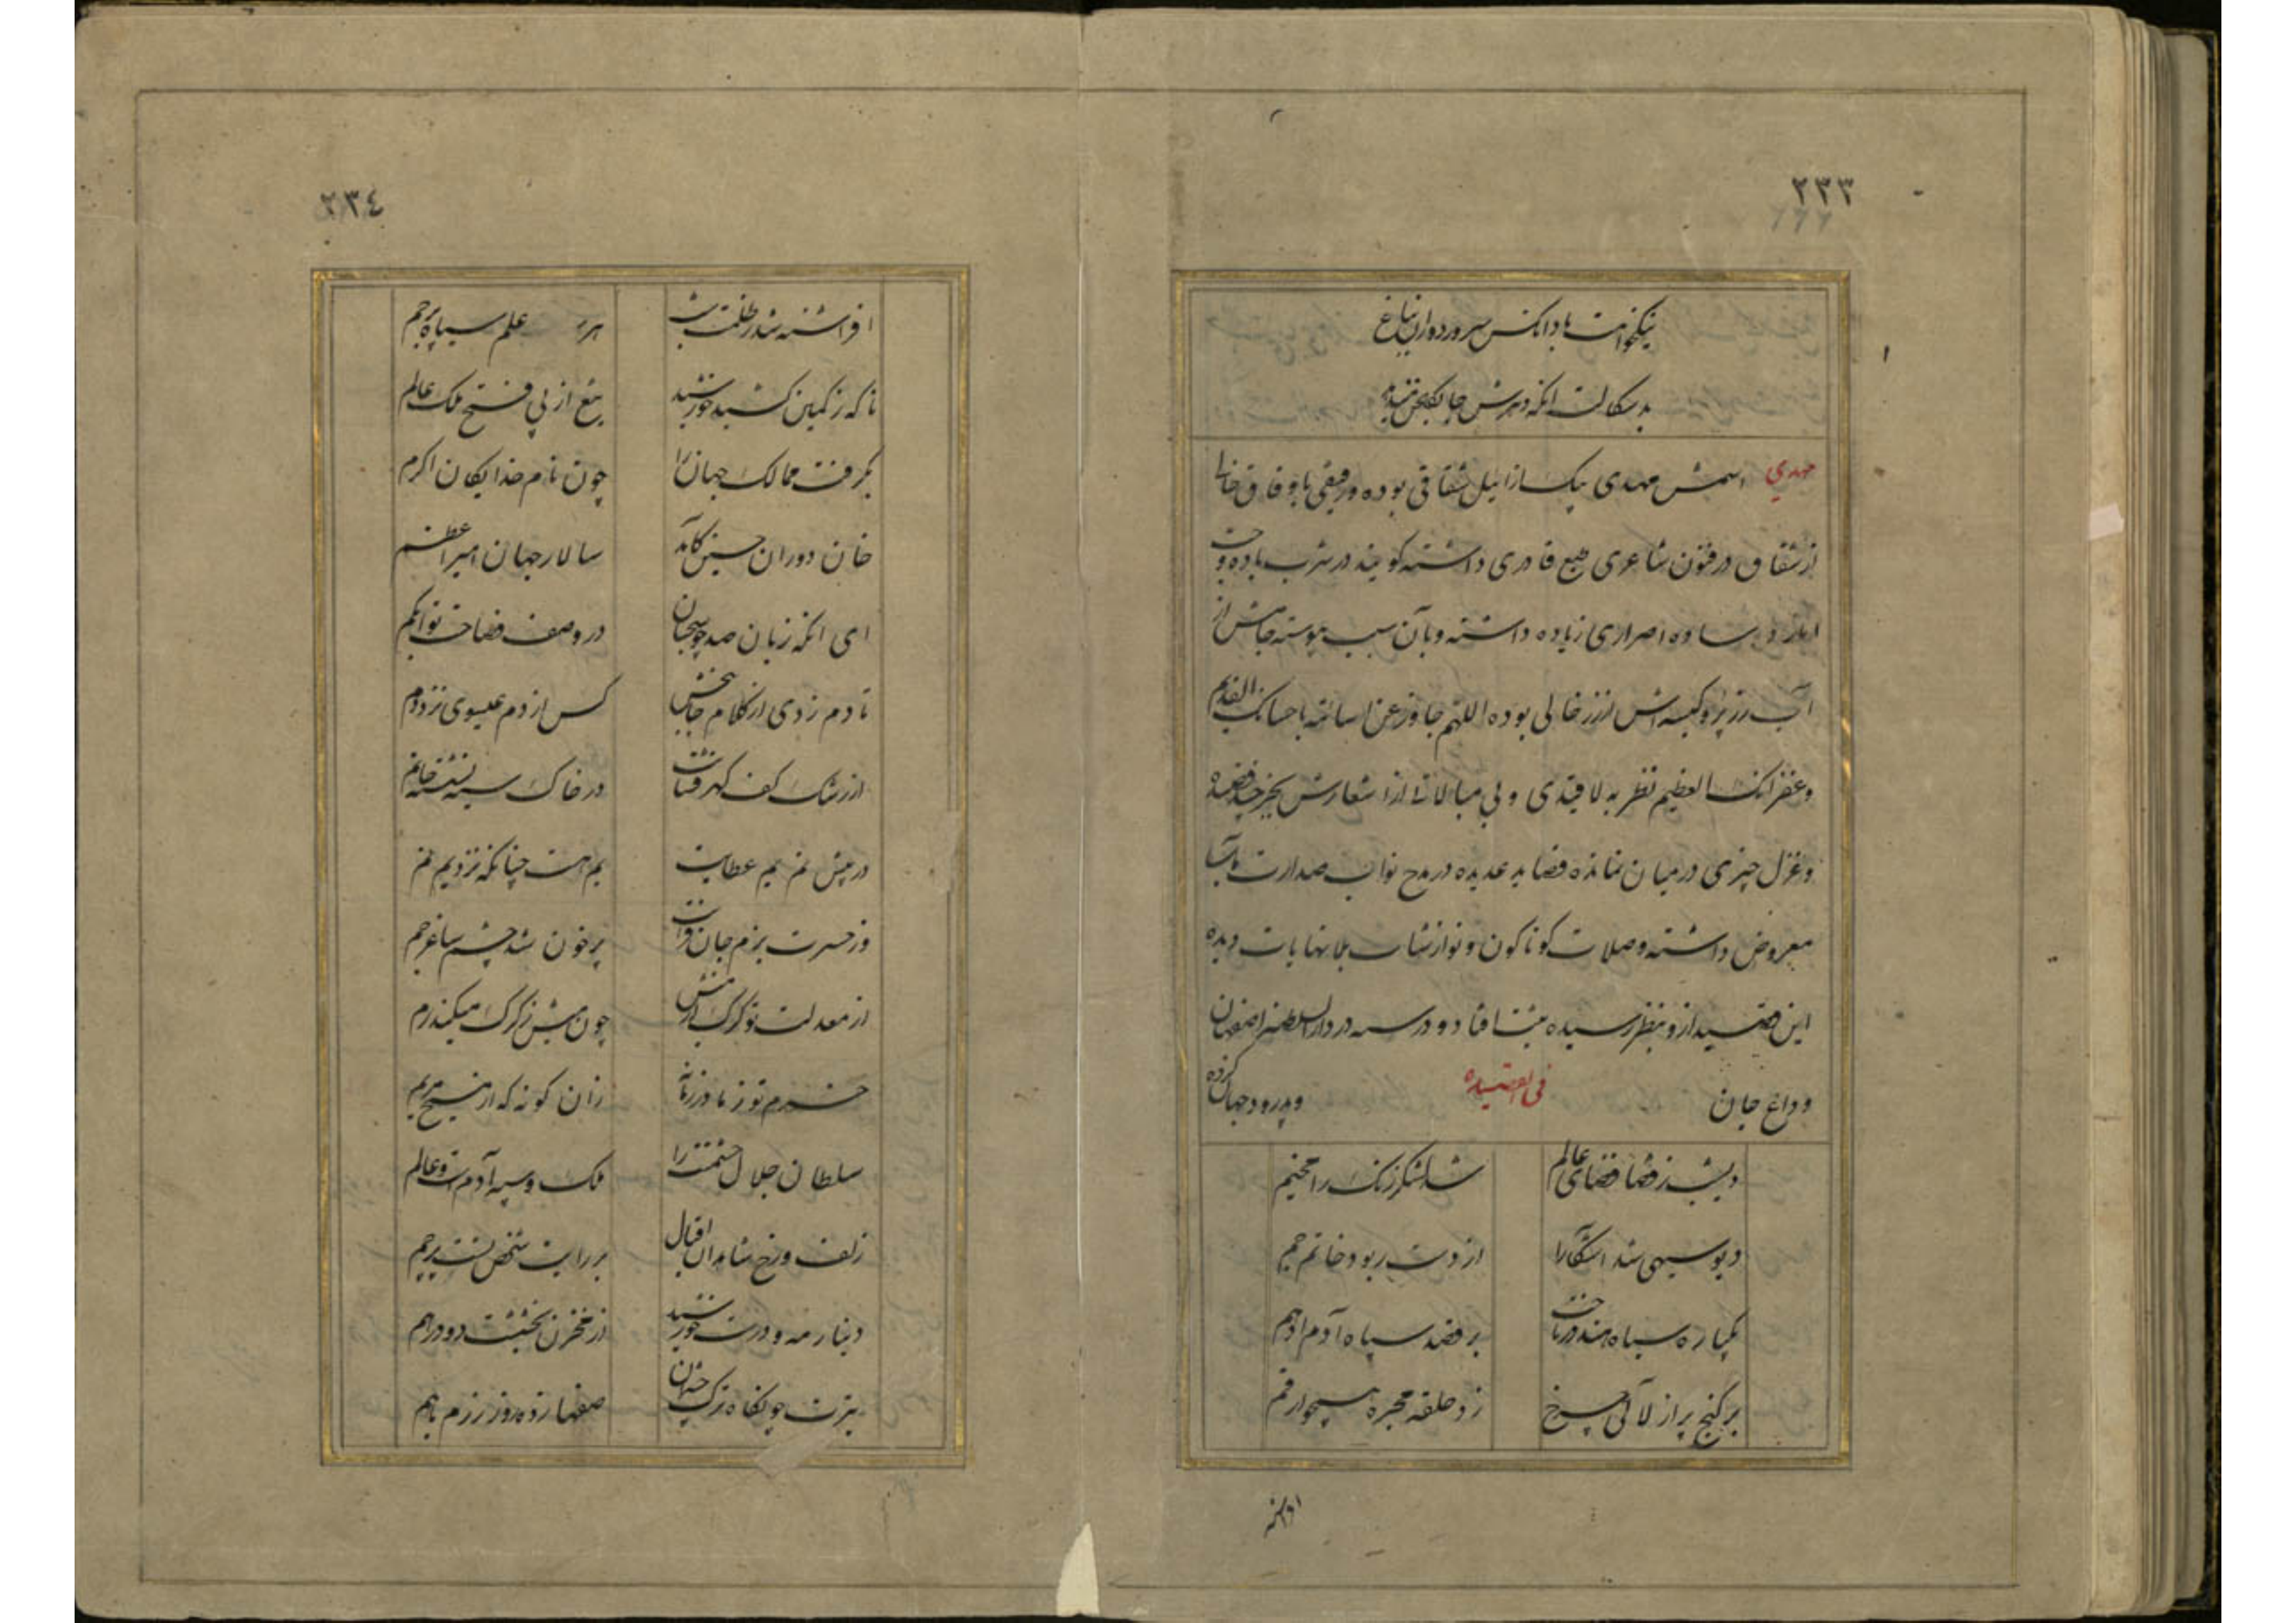 ۲۳۳
نیکخواهت باد آنکس سرور دوران بباغ
بدسکالت انکه در برش جا
مهدی اسمش مهدی بیک از ایل شقاقی بوده و رفیقی با وفاق خالی
از شقاق در فنون شاعری طبع قادری داشته کویند در شرب باده و
ساده اصراری زیاده داشته و بآن سبب پیوسته جامش از
آب رز پر و کیسه اش از زر خالی بوده اللهم جاوز عن اسائته باحسانک القدیم
و غفرانک العظیم نظر به لاقیدی و بی مبالاتی از اشعارش بجز چند قصیده
و غزل چیزی در میان نمانده قصاید عدیده در مدح نواب صدارت
معروض داشته و صلات کوناکون و نوازشات بلانهایات دیده
این قصیده ازو بنظر رسیده در سنه در دارالسلطنه اصفهان
وداع جان و بدرود جهان کرده
فی القصیده
دیشب ز قضا فضای عالم شد لشکر زنک را مخیم
دیو سیهی شد آشکارا از دست ربود خاتم جم
یکباره سیاه هند در تاخت بر قصد سپاه آدم ادهم
بر کنج پر از لآلی چرخ زد حلقه مجره همچو ارقم
افراشته
۲۳٤
افراشته شد ز ظلمت شب هر علم سیاه پرچم
ناکه ز کمین کشید خورشید تیغ از پی فتح ملک عالم
بکرفت ممالک جهان را چون نام خدایکان اکرم
خان دوران حسین کامد سالار جهان امیر اعظم
ای انکه زبان صد چو سحبان در وصف فصاحت تو ابکم
تا دم زدی از کلام جان بخش کس از دم عیسوی نزد دم
از رشک کف کهر فشانت در خاک سیه نشسته خاتم
در پیش نم یم عطایت یم هست چنانکه نزد یم نم
وز حسرت بزم جان فزایت پر خون شده چشم ساغر جم
از معدلت تو کرک از میش چون میش ز کرک میکند رم
خرم تو زمادر زمانه زان کونه که از مسیح مریم
سلطان جلال حشمتت را ملک و سپه آدمست و عالم
زلف و رخ شاهدان اقبال بر رایت شخص تست پرچم
دینار مه و درست خورشید از مخزن بخششت دو درهم
تیرت چو نکاه ترک چشمان صفها زده روز رزم باهم